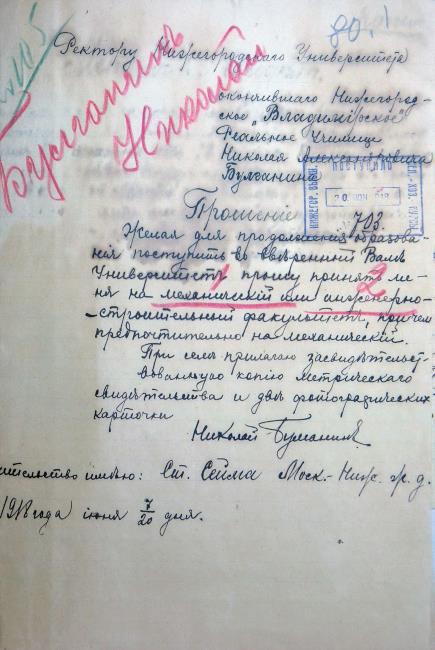 80.1
Ректору Нижегородскаго Университета
Булганинъ
Николай
окончившаго Нижегород-
ское „Владимірское"
Реальное Училище
Николая Александровича
Булганина
ПОСТУПИЛО
703.
Прошеніе
Желая для продолженія образова-
нія поступить во ввѣренный Вамъ
Университетъ прошу принять ме-
ня на механическій или инженерно-
1
2
-строительный факультетъ, причем
предпочтительно на механическій.
При семъ прилагаю засвидѣтельст-
вованную копію метрическаго
свидѣтельства и двѣ фотографическихъ
карточки
Николай Булганинъ
ительство имѣю: Ст. Сейма Моск.-Ниж. ж. д.
1918 года іюня 7/20 дня.